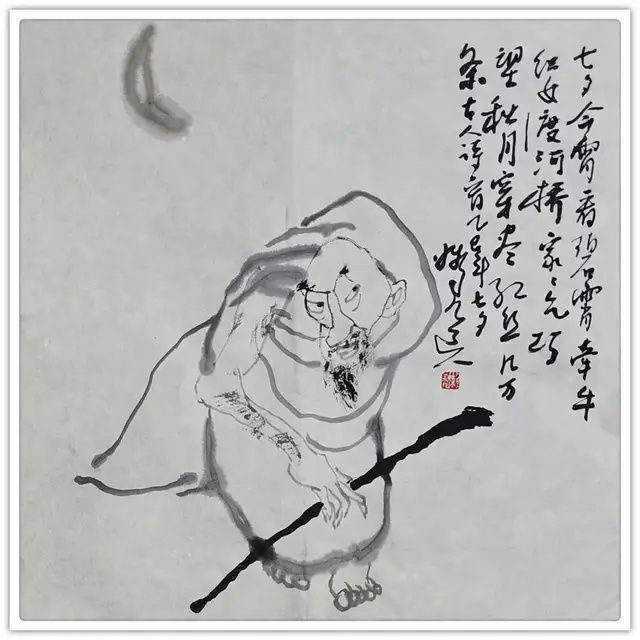 七夕今宵看碧霄牵牛
织女度河桥家〻乞巧
望秋月穿尽红丝几万
条古人诗首乙巳年七夕